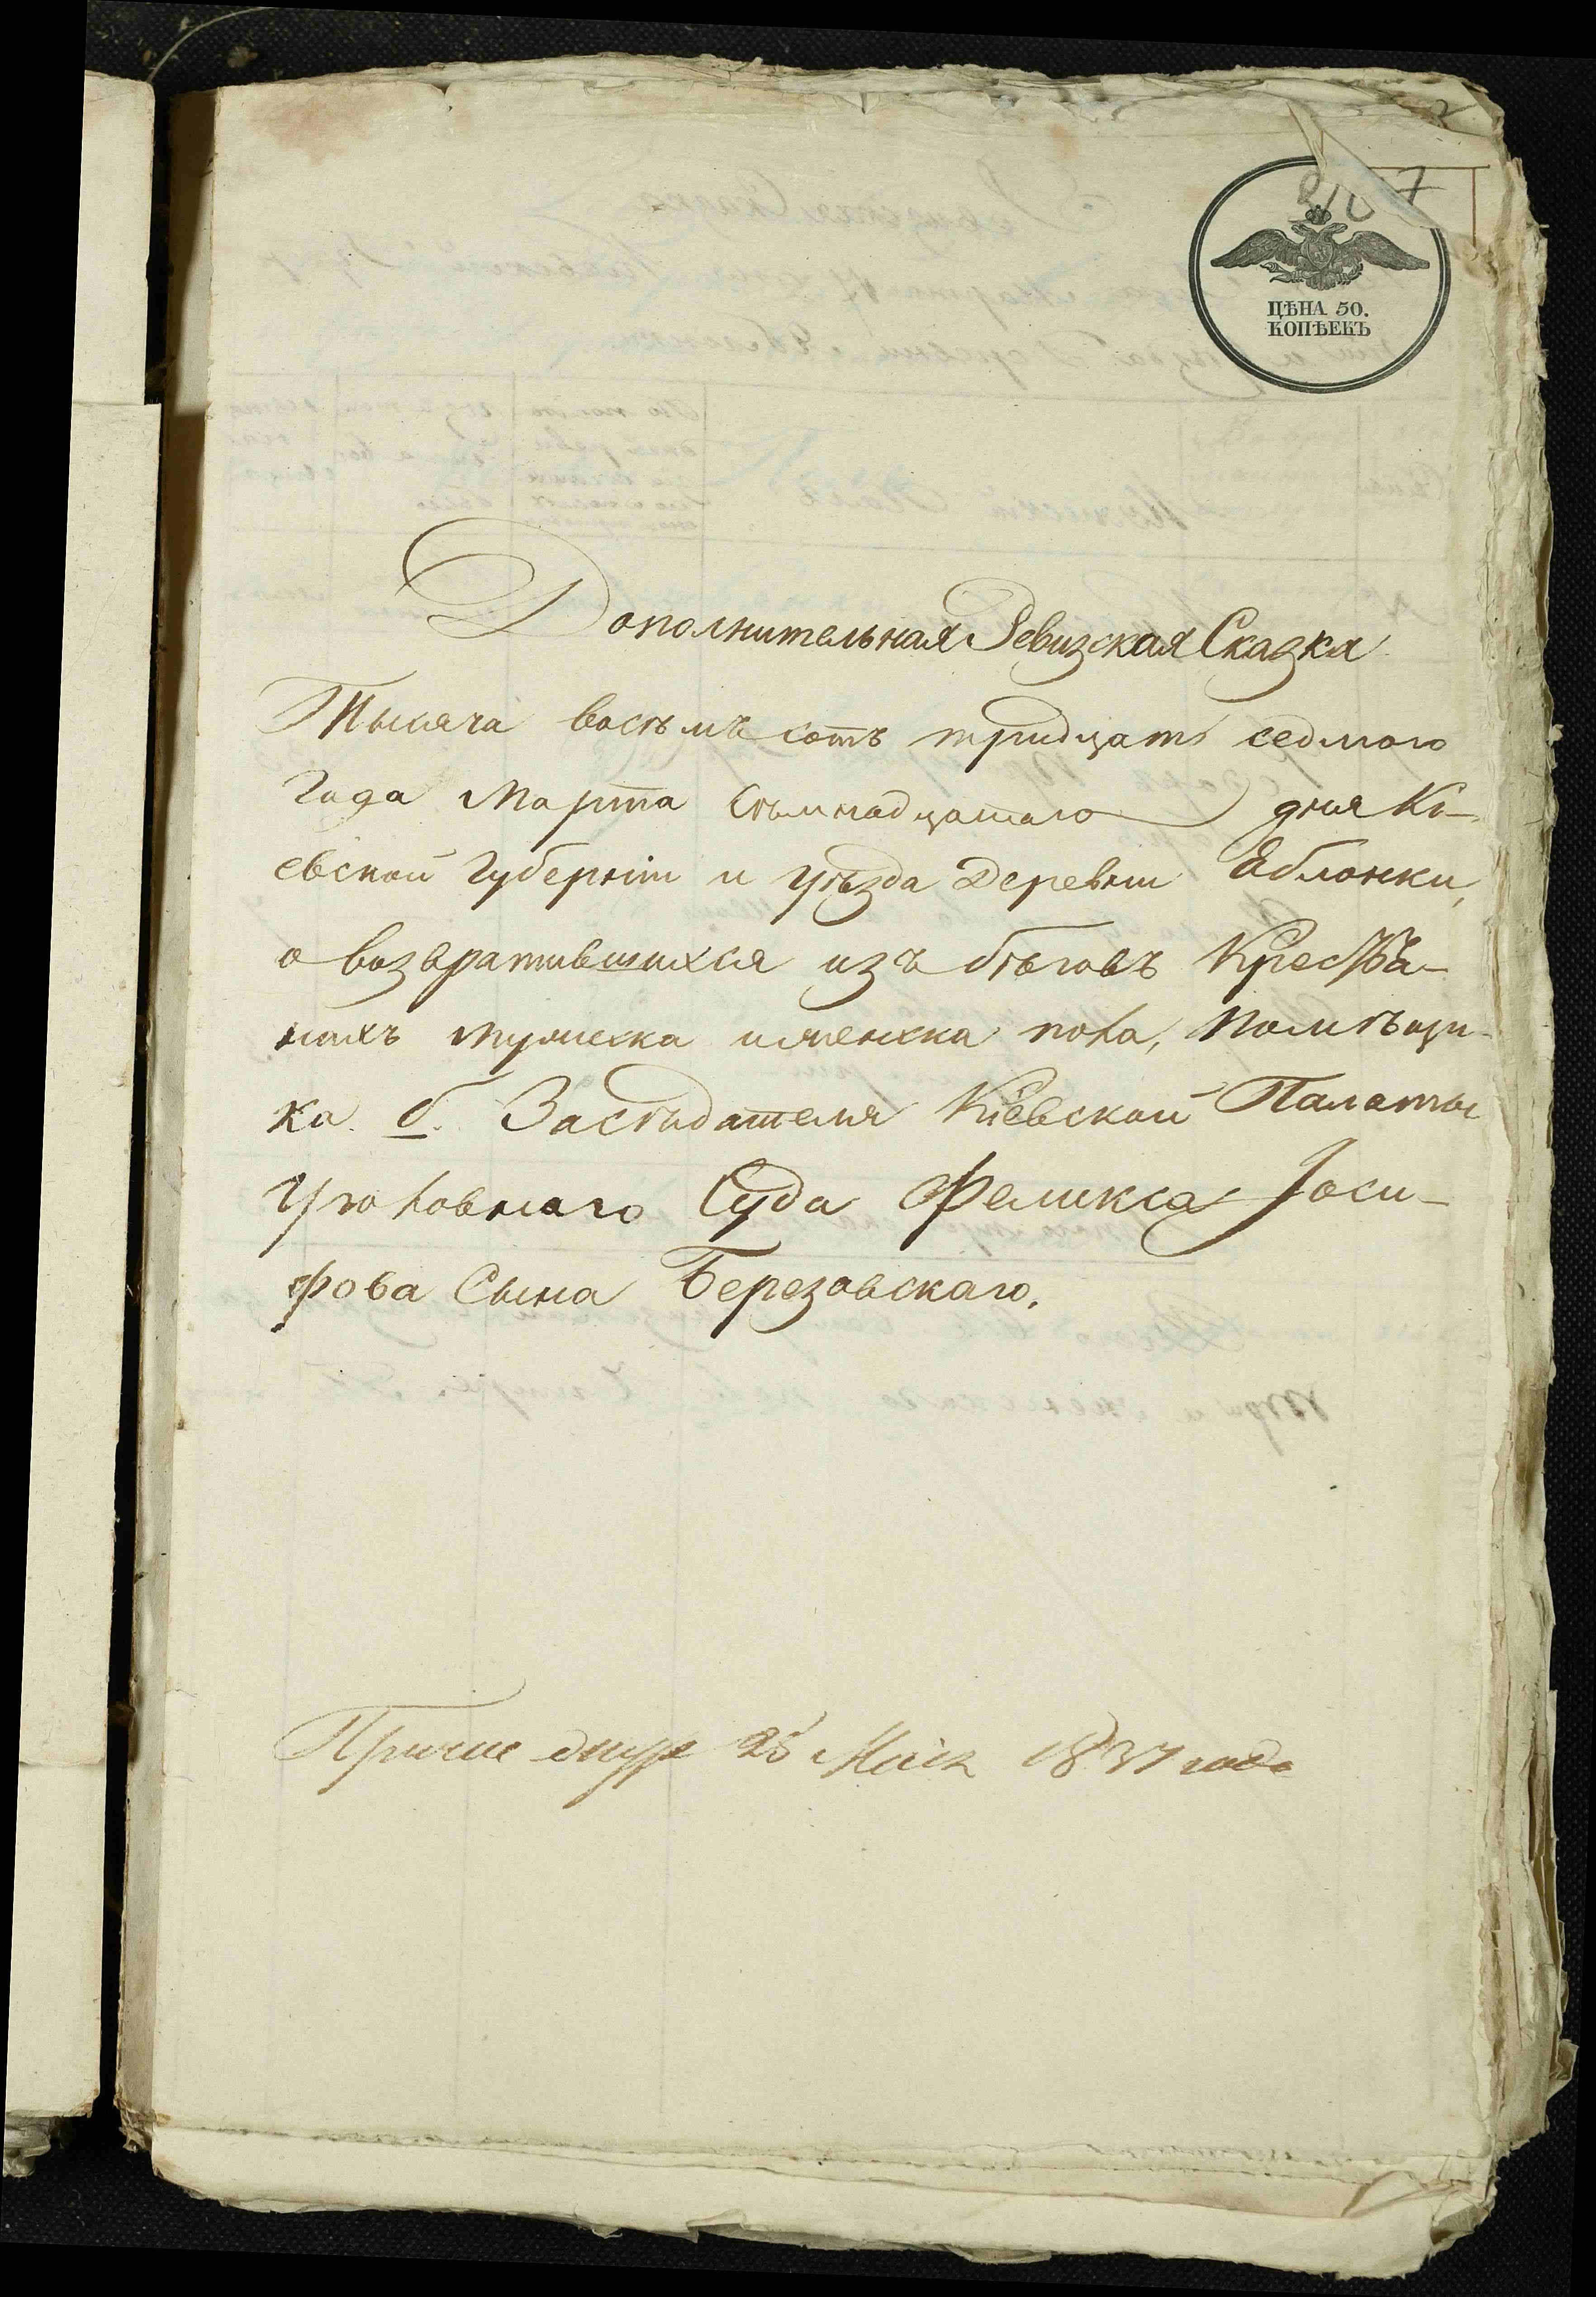 ЦѢНА 50.
КОПѢЕКЪ
Дополнительная Ревизская Сказка
Тысяча восемъ сотъ тридцать седмого
Года Марта семнадцатаго дня Кі-
евской Губерніи и уѣзда Деревни Яблонки,
о возвратившихся изъ бѣговъ Крестья-
нахъ мужеска и женска пола, Помѣщи-
ка б. Засѣдателя Кіевской Палаты
Уголовнаго Суда Феликса Іоси-
фова Сына Березовскаго.
Мая 1837 года